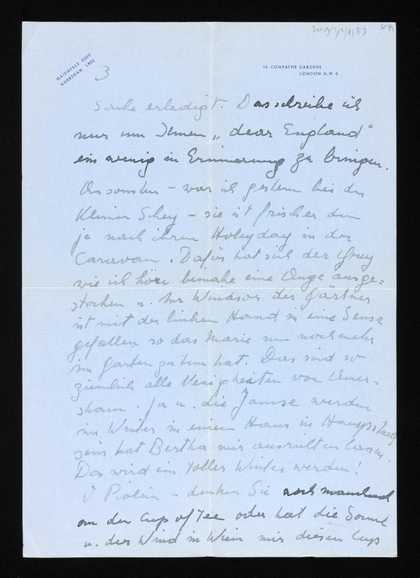 MAIDVALE 6227
AMERSHAM 1402
3
14 COMPAYNE GARDENS
LONDON N.W.6.
Sache erledigt. Das schreibe ich
nur um Ihnen „dear England"
ein wenig in Erinnerung zu bringen.
Ansonsten – war ich gestern bei der
Kleinen – sie ist frischer denn
je nach ihrem Holyday in der
Caravan. Dafür hat sich der
wie ich höre beinahe eine Auge ausge-
stochen u. Mr Windsor der Gärtner
ist mit der linken Hand in eine Sense
gefallen so das Marie nun noch mehr
im Garten zu tun hat. Das sind so
ziemlich alle Neuigkeiten von Amer-
sham. Ja u. die werden
im Winter in einem Haus in Hampstead
sein hat Bertha mir ausrichten lassen.
Das wird ein toller Winter werden!
– denken Sie noch manchmal
an den Cup of Tee oder hat die Sonne
u. der Wind in Wien mir diesen Cup